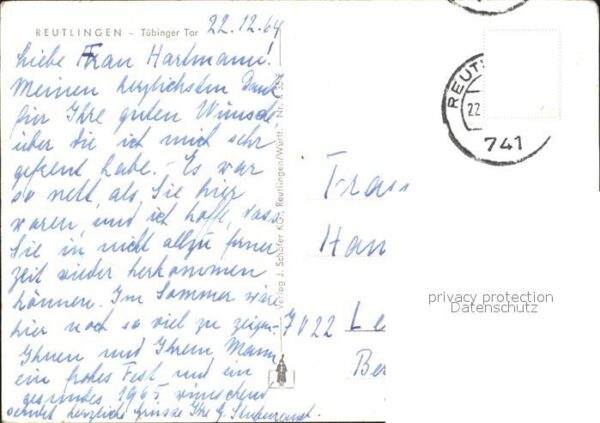 REUTLINGEN - Tübinger Tor 22.12.64
Liebe Frau Hartmann!
Meinen herzlichsten Dank
für Ihre guten Wünsche
über die ich mich sehr
gefreut habe. - Es war
so nett, als Sie hier
waren, und ich hoffe, dass
Sie in nicht allzu ferner
Zeit wieder herkommen
können. Im Sommer wäre
hier noch so viel zu zeigen.
Ihnen und Ihrem Mann
ein frohes Fest und ein
gesundes 1965 wünschend
sendet herzliche Grüsse Ihr G.
Verlag J. Schäfer KG., Reutlingen/Württ. Nr.
REUTL
22.
741
Frau
Han
7022 Le
Ber
privacy protection
Datenschutz